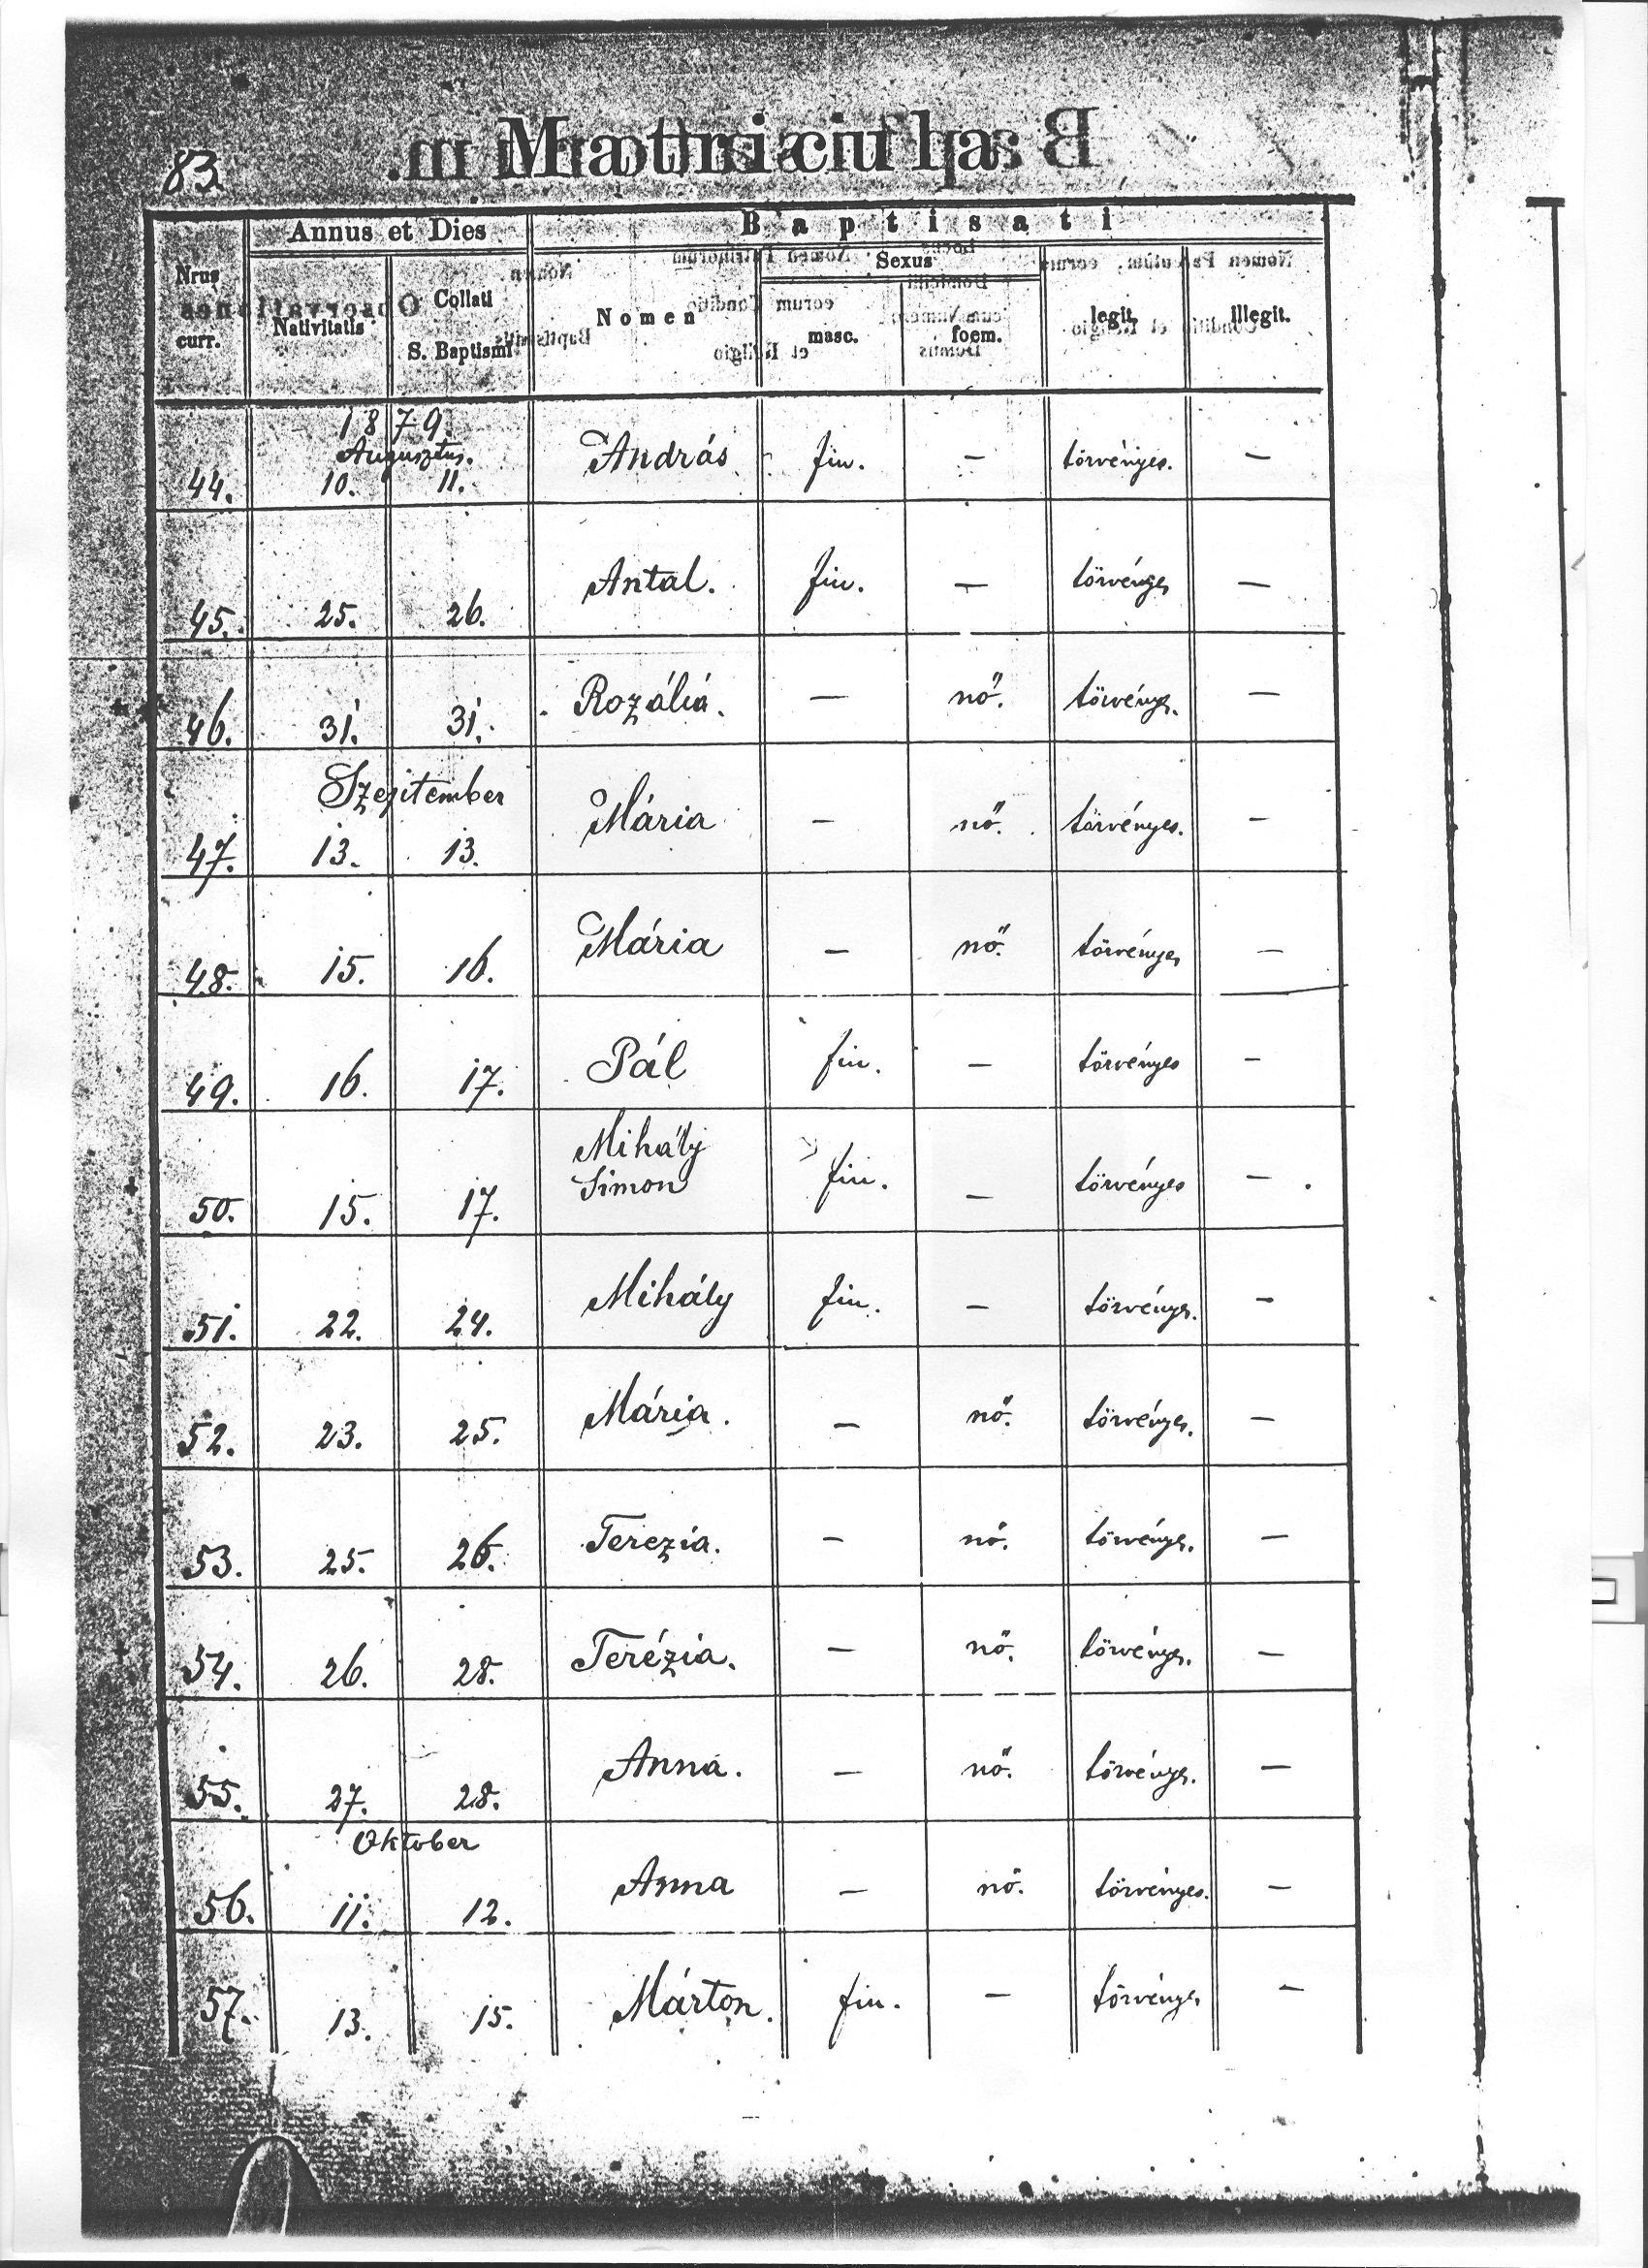 83
Matricula
Annus et Dies
Baptisati
Nrus
curr.
Nativitatis
Collati
S. Baptismi
Nomen
Sexus
masc.
foem.
legit.
illegit.
1879.
Augusztus.
44. 10. 11. András fiu. — törvényes. —
45. 25. 26. Antal. fiu. — törvényes —
46. 31. 31. Rozália. — nő. törvényes. —
Szeptember
47. 13. 13. Mária — nő. törvényes. —
48. 15. 16. Mária — nő. törvényes —
49. 16. 17. Pál fiu. — törvényes —
Mihály
50. 15. 17. Simon fiu. — törvényes —
51. 22. 24. Mihály fiu. — törvényes. —
52. 23. 25. Mária. — nő. törvényes. —
53. 25. 26. Terezia. — nő. törvényes. —
54. 26. 28. Terézia. — nő. törvényes. —
55. 27. 28. Anna. — nő. törvényes. —
Oktober
56. 11. 12. Anna — nő. törvényes. —
57. 13. 15. Márton. fiu. — törvényes —